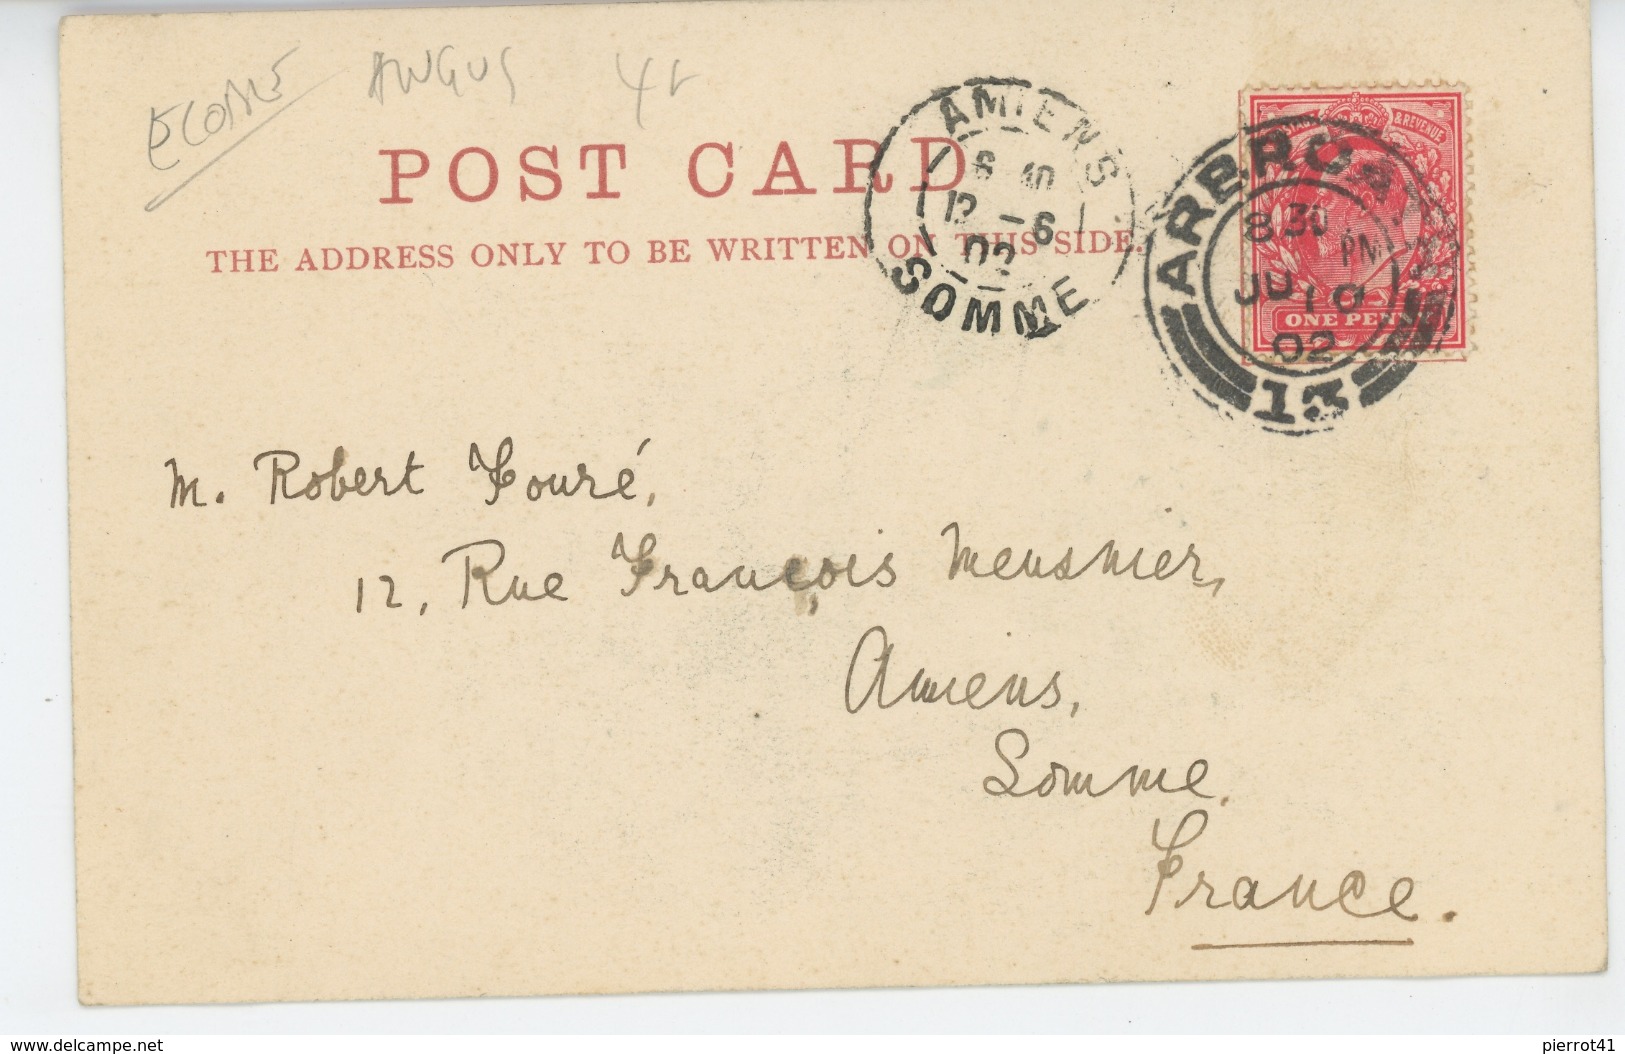 ANGUS
POST CARD
THE ADDRESS ONLY TO BE WRITTEN ON THIS SIDE.
AMIENS
12 -6
02
SOMME
& REVENUE
ONE PENNY
ARBRO
8 30 PM
JU 10
02
13
M. Robert Fouré,
12, Rue François Meusnier,
Amiens,
Somme.
France.
www.delcampe.net
pierrot41